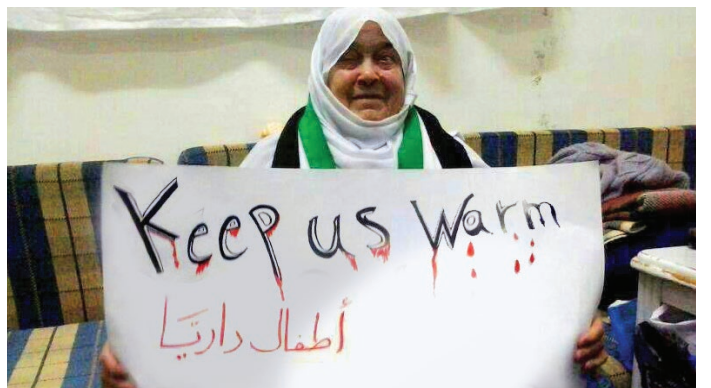 Keep us warm
أطفال داريَـا